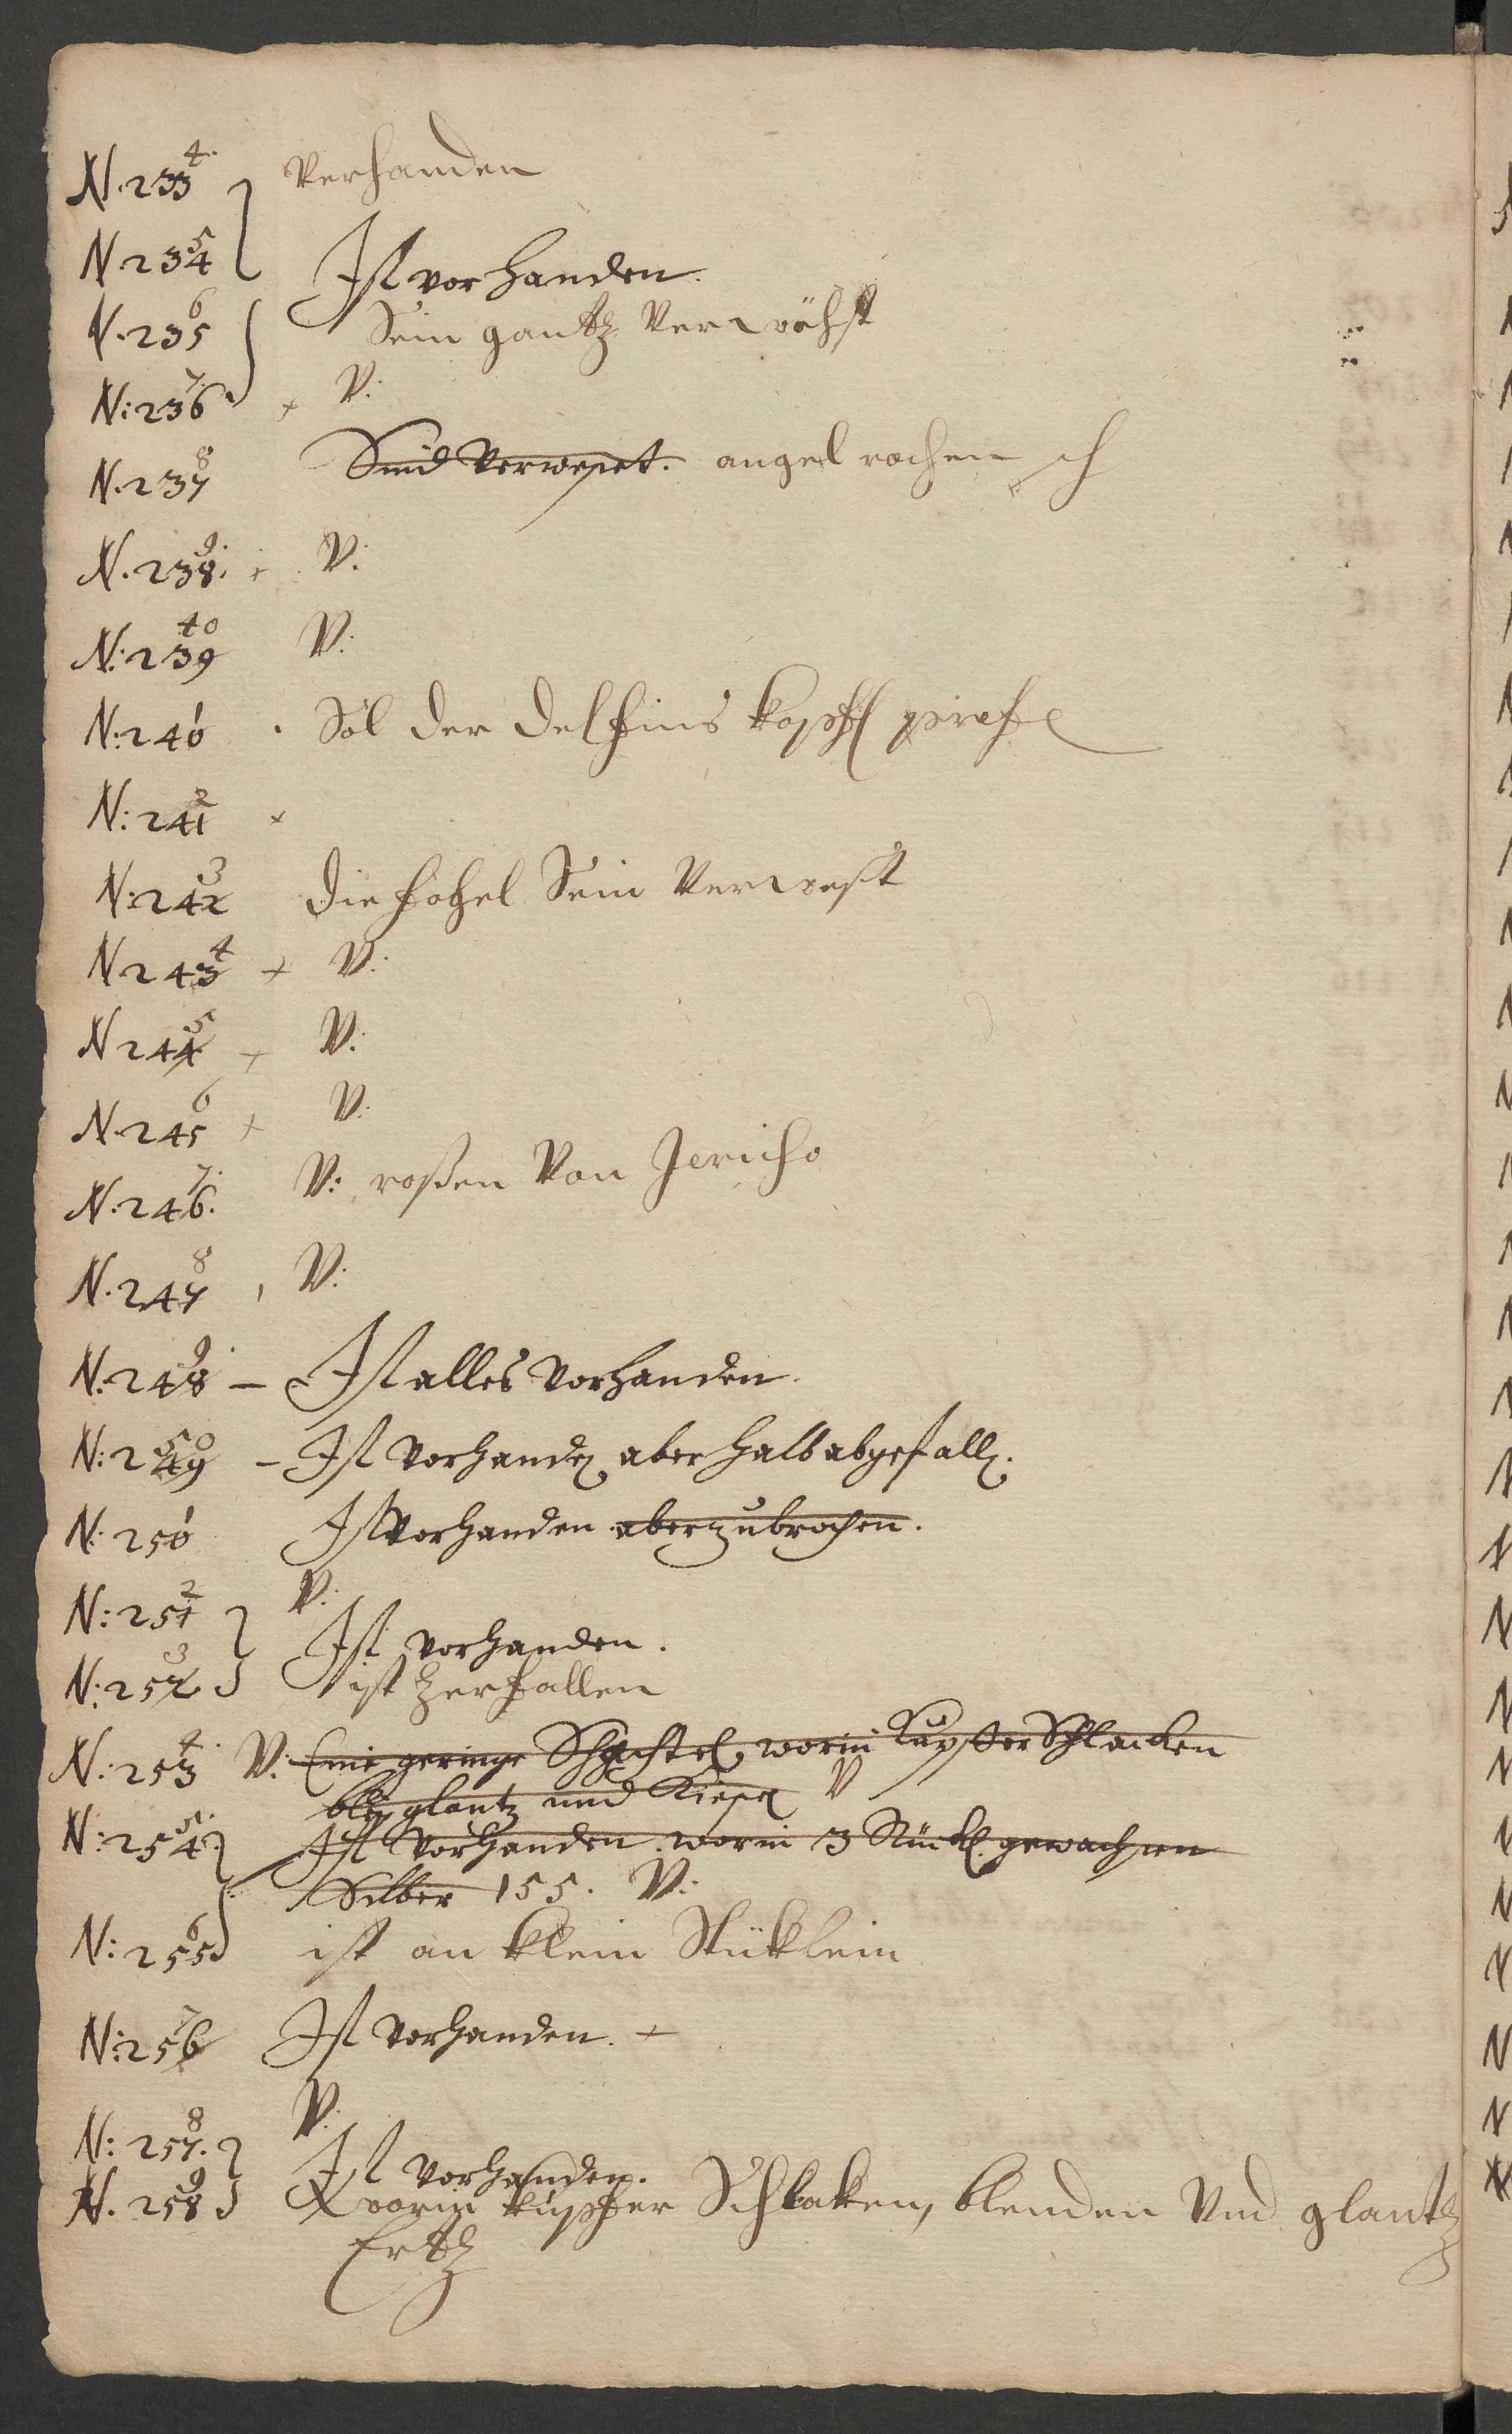 N. 233 4. verhanden
N. 234 5
Ist vorhanden.
N. 235 6 Sein gantz verwöhst
N: 236 7. + V:
N. 237 8 Sind verweset. angel rochen
N. 238. 9. + V:
N: 239 40 V:
N: 240 1 . Sol der delfins kopff
N: 241 2 +
N: 242 3 die fogel Sein verwest
N. 243 4 + V:
N 244 5 + V:
N. 245 6 + V:
N. 246. 7. V: roßen Von Jericho
N. 247 8 V:
N. 248 9. – Ist alles vorhanden.
N: 249 50 – Ist vorhanden aber halb abgefallen.
N: 250 1 Ist vorhanden aber zubrochen.
N: 251 2 V:
Ist vorhanden.
N: 252 3 ist Zerfallen
N: 253 4. V: Eine geringe Schachtel, worin Kupffer Schlacken
bley glantz und Kiese V
N: 254. 5. Ist vorhanden. worin 3 Stück gewachsen
Silber 155. V:
N: 255 6 ist an klein Stüklein
N: 256 7 Ist vorhanden. +
V:
N: 257. 8
Ist vorhanden.
N. 258 9 worin kupffer Schlaken, blenden Vnd glantz
Ertz